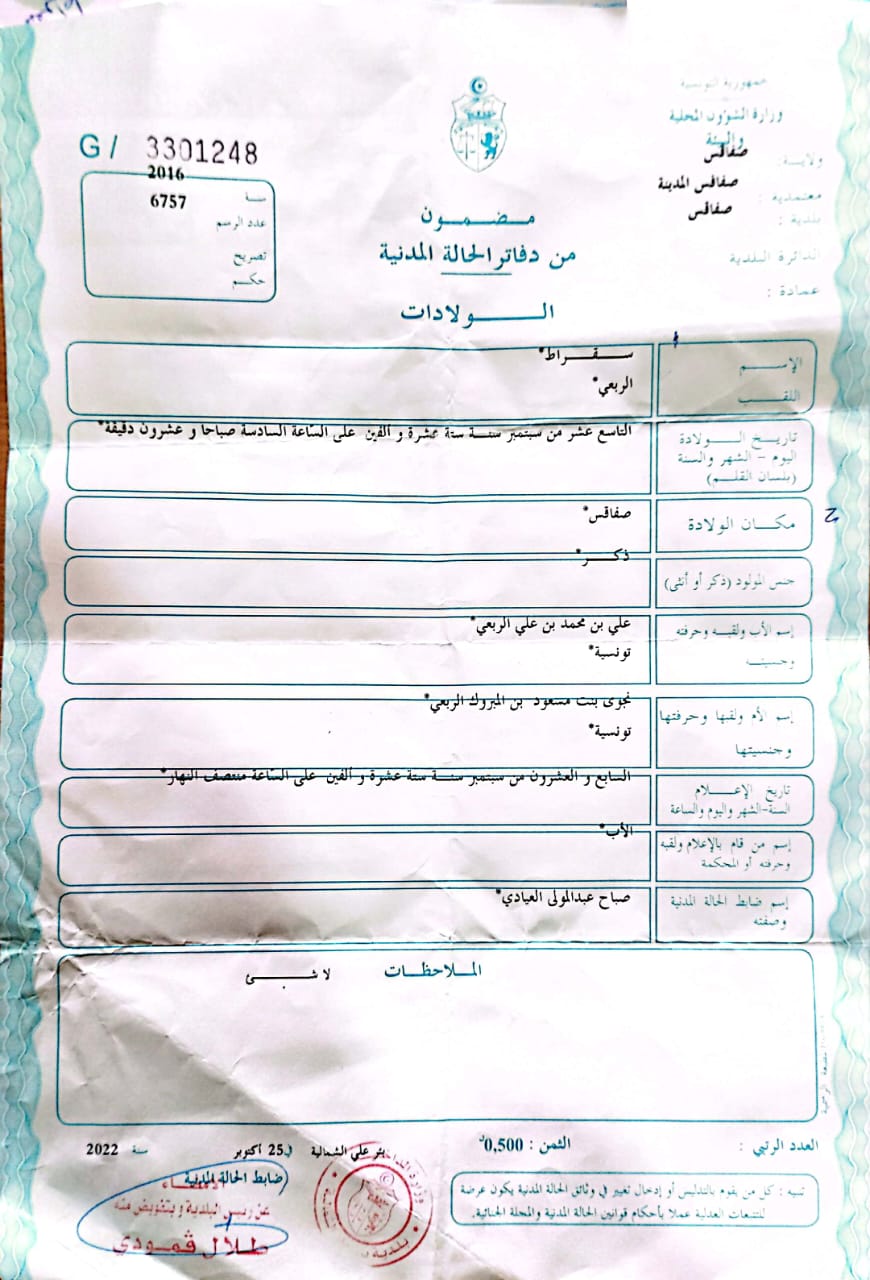 جمهورية التونسية
وزارة الشؤون المحلية
والبيئة
ولاية : صفاقس
معتمدية : صفاقس المدينة
بلدية : صفاقس
الدائرة البلدية
عمادة :
G / 3301248
سنة 2016
عدد الرسم 6757
تصريح
حكم
مضمون
من دفاتر الحالة المدنية
الولادات
الإسم سقراط*
اللقب الربعي*
تاريخ الولادة
اليوم - الشهر والسنة
(بلسان القلم)
التاسع عشر من سبتمبر سنة ستة عشرة و ألفين على الساعة السادسة صباحا و عشرون دقيقة*
مكان الولادة صفاقس*
جنس المولود (ذكر أو أنثى) ذكر*
إسم الأب ولقبه وحرفته
علي بن محمد بن علي الربعي*
تونسية*
إسم الأم ولقبها وحرفتها
وجنسيتها
نجوى بنت مسعود بن المبروك الربعي*
تونسية*
تاريخ الإعلام
السنة-الشهر واليوم والساعة
السابع و العشرون من سبتمبر سنة ستة عشرة و ألفين على الساعة منتصف النهار*
إسم من قام بالإعلام ولقبه
وحرفته أو المحكمة
الأب*
إسم ضابط الحالة المدنية
وصفته
صباح عبدالمولى العيادي*
الملاحظات لا شئ
العدد الرتبي :
الثمن : 0,500د
بئر علي الشمالية في 25 أكتوبر سنة 2022
تنبيه : كل من يقوم بالتدليس أو إدخال تغيير في وثائق الحالة المدنية يكون عرضة
للتتبعات العدلية عملا بأحكام قوانين الحالة المدنية والمجلة الجنائية.
ضابط الحالة المدنية
الإمضاء
عن رئيس البلدية و بتفويض منه
طلال ڨمودي